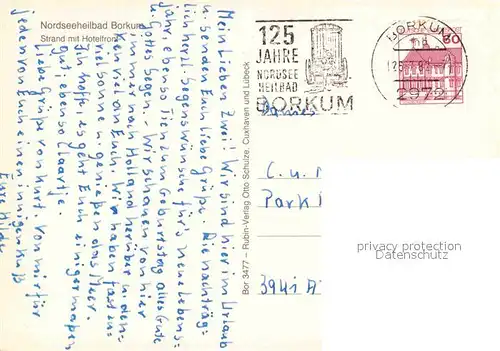 Nordseeheilbad Borkum
Strand mit Hotelfront
Mein Lieben Zwei! Wir sind hier im Urlaub
u. senden Euch liebe Grüße. Die nachträg=
lich herzl. Segenswünsche für's neue Lebens=
jahr, ebenso Tien zum Geburtstag alles Gute
u. Gottes Segen. Wir schauen von hier
immer nach Holland herüber u. den=
ken viel an Euch. Wir haben fast im=
viel Sonne u. genießen das Meer.
Ich hoffe, es geht Euch einigermaßen
gut, ebenso
Liebe Grüße von Kurt. Von mir für
jeden von Euch einen innigen Kuß
Eure Hilde
Bor 3477 – Rubin-Verlag Otto Schulze, Cuxhaven und Lübeck
125
JAHRE
NORDSEE
HEILBAD
BORKUM
BORKUM
2972
60
C. u. T
Park
3941 A
privacy protection
Datenschutz